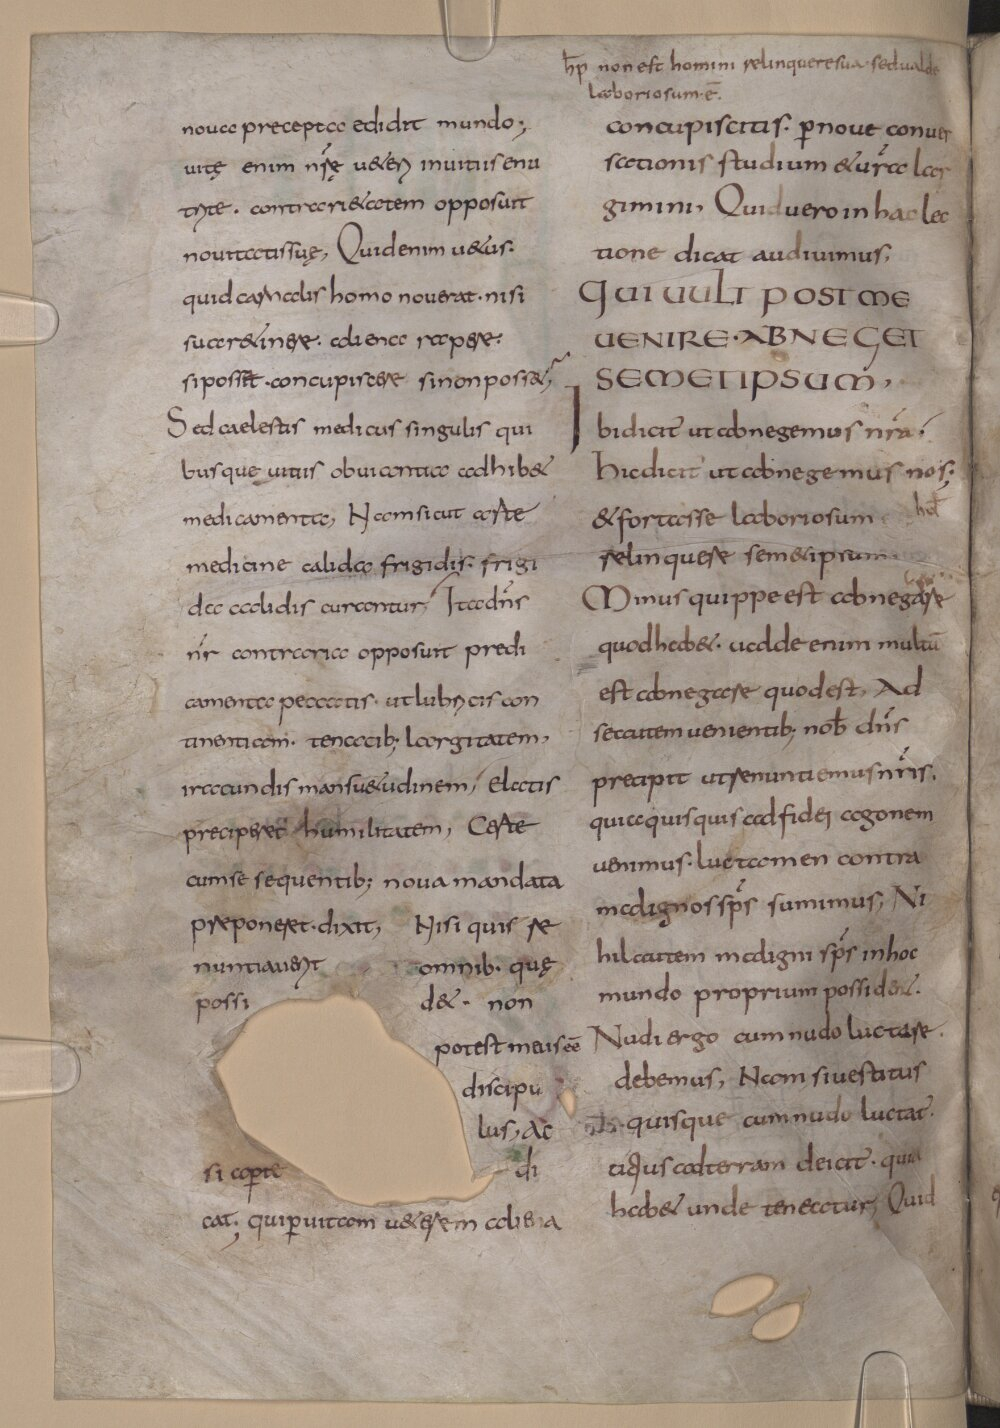 h̄p non est homini relinquere sua. sed ualde
laboriosum. ē.
noua precepta edidit mundo;
uitę enim nr̄ę u&eri inuitiis enu
trite. contrari&atem opposuit
nouitatis suę, Quid enim u&us.
quid carnalis homo nouerat. nisi
sua r&inere. aliena rapere.
si posset. concupiscere si non poss&,
Sed caelestis medicus singulis qui
busque uitiis obuiantia adhib&
medicamenta, Nam sicut arte
medicine calida frigidis. frigi
da calidis curantur, Ita dn̄s
nr̄ contraria opposuit predi
camenta peccatis. ut lubricis con
tinentiam. tenacib; largitatem,
iracundis mansu&udinem, Elatis
preciperet humilitatem, Certe
cum se sequentib; noua mandata
preponeret. dixit, Nisi quis re
nuntiauerit omnib. quę
possi de&. non
potest meus eē
discipu
lus, Ac
si aperte di
cat; qui per uitam u&erem aliena
concupiscitis. per noue conuer
sationis studium & ur̄a lar
gimini, Quid uero in hac lec
tione dicat audiuimus,
QUI UULT POST ME
UENIRE. ABNEGET
SEMETIPSUM,
Ibi dicit ut abnegemus nr̄a.
hic dicit ut abnegemus nos;
& fortasse laboriosum hō
relinquere sem&ipsum
Minus quippe est abnegare
quod hab&. ualde enim multū
est abnegare quod est, Ad
se autem uenientib; nob dn̄s
precipit ut renuntiemus nr̄is,
quia quisquis ad fidei agonem
uenimus. luctamen contra
malignos sp̄s sumimus, Ni
hil autem maligni sp̄s in hoc
mundo proprium possident.
Nudi ergo cum nudo luctare
debemus, Nam si uestitus
quisque cum nudo luctat.
citius ad terram deicit. quia
hab& unde teneatur, Quid